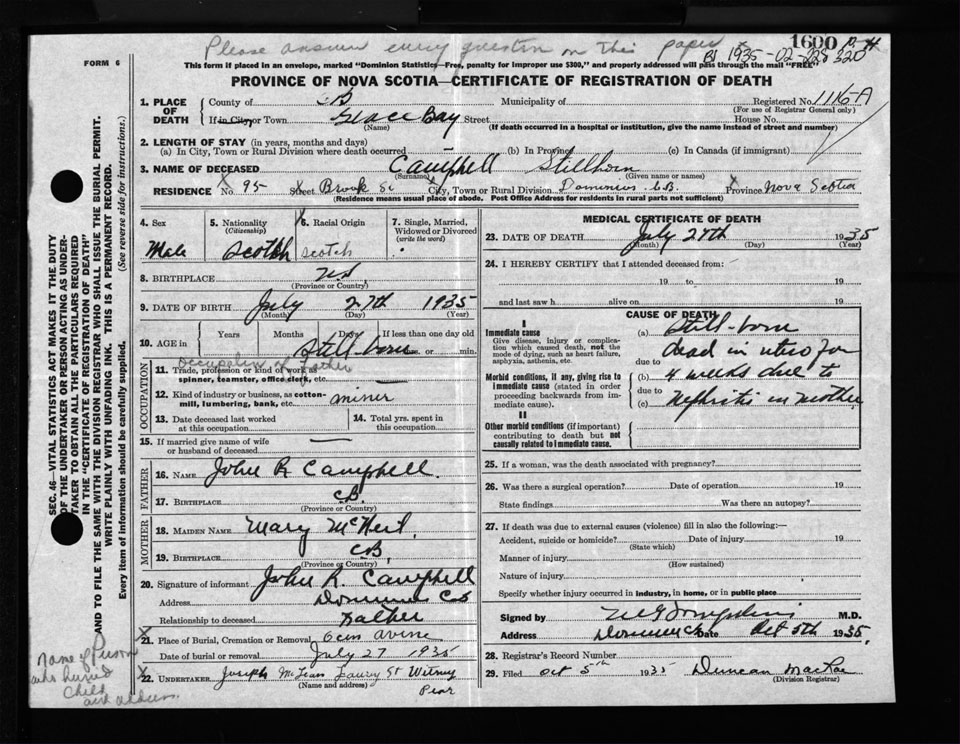 Please answer every question on this paper
1600
1935-02-228320
FORM 6
This form if placed in an envelope, marked "Dominion Statistics—Free, penalty for improper use $300," and properly addressed will pass through the mail "FREE"
PROVINCE OF NOVA SCOTIA—CERTIFICATE OF REGISTRATION OF DEATH
1. PLACE OF DEATH
County of CB Municipality of Registered No. 1116-A
(For use of Registrar General only)
If in City or Town Glace Bay Street House No.
(Name) (If death occurred in a hospital or institution, give the name instead of street and number)
2. LENGTH OF STAY (in years, months and days)
(a) In City, Town or Rural Division where death occurred (b) In Province (c) In Canada (if immigrant)
3. NAME OF DECEASED Campbell Stillborn
(Surname) (Given name or names)
RESIDENCE No. 95 Street Brook St City, Town or Rural Division Dominion C.B. Province Nova Scotia
(Residence means usual place of abode. Post Office Address for residents in rural parts not sufficient)
4. Sex
Male
5. Nationality
(Citizenship)
Scotch
6. Racial Origin
scotch
7. Single, Married, Widowed or Divorced
(write the word)
8. BIRTHPLACE
(Province or Country)
9. DATE OF BIRTH July 27th 1935
(Month) (Day) (Year)
10. AGE in Years Months Days If less than one day old
Still-born hrs. or min.
occupation of father
OCCUPATION
11. Trade, profession or kind of work as spinner, teamster, office clerk, etc.
12. Kind of industry or business, as cotton-mill, lumbering, bank, etc. miner
13. Date deceased last worked at this occupation
14. Total yrs. spent in this occupation
15. If married give name of wife or husband of deceased
FATHER
16. NAME John R Campbell
17. BIRTHPLACE C.B.
(Province or Country)
MOTHER
18. MAIDEN NAME Mary McNeil
19. BIRTHPLACE CB
(Province or Country)
20. Signature of informant John R. Campbell
Address Dominion C.B
Relationship to deceased Father
21. Place of Burial, Cremation or Removal
Date of burial or removal July 27 1935
22. UNDERTAKER Joseph McLean St Witney
(Name and address)
Pear
MEDICAL CERTIFICATE OF DEATH
23. DATE OF DEATH July 27th 1935
(Month) (Day) (Year)
24. I HEREBY CERTIFY that I attended deceased from:
19 to 19
and last saw h alive on 19
CAUSE OF DEATH
I
Immediate cause
Give disease, injury or complication which caused death, not the mode of dying, such as heart failure, asphyxia, asthenia, etc.
(a) Still-born
dead in utero for
due to
Morbid conditions, if any, giving rise to immediate cause (stated in order proceeding backwards from immediate cause).
(b) 4 weeks due to
due to
(c) nephritis in mother
II
Other morbid conditions (if important) contributing to death but not causally related to immediate cause.
25. If a woman, was the death associated with pregnancy?
26. Was there a surgical operation? Date of operation 19
State findings Was there an autopsy?
27. If death was due to external causes (violence) fill in also the following:—
Accident, suicide or homicide? Date of injury 19
(State which)
Manner of injury
(How sustained)
Nature of injury
Specify whether injury occurred in industry, in home, or in public place
Signed by M.D.
Address Date Oct 5th 1935.
28. Registrar's Record Number
29. Filed Oct 5th 1935 Duncan MacRae
(Division Registrar)
SEC. 46—VITAL STATISTICS ACT MAKES IT THE DUTY
OF THE UNDERTAKER OR PERSON ACTING AS UNDER-
TAKER TO OBTAIN ALL THE PARTICULARS REQUIRED
IN THE "CERTIFICATE OF REGISTRATION OF DEATH"
AND TO FILE THE SAME WITH THE DIVISION REGISTRAR WHO SHALL ISSUE THE BURIAL PERMIT.
WRITE PLAINLY WITH UNFADING INK. THIS IS A PERMANENT RECORD.
Every item of information should be carefully supplied. (See reverse side for instructions.)
Name of Person
who buried
Child
and address